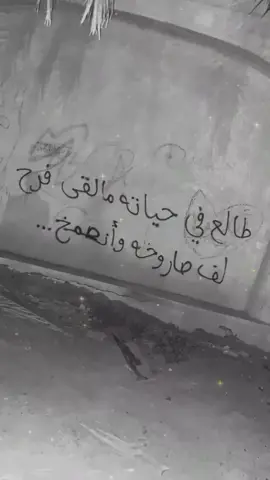 طالع في حياته مالقى فرح
لف صاروخه وأنصمخ...